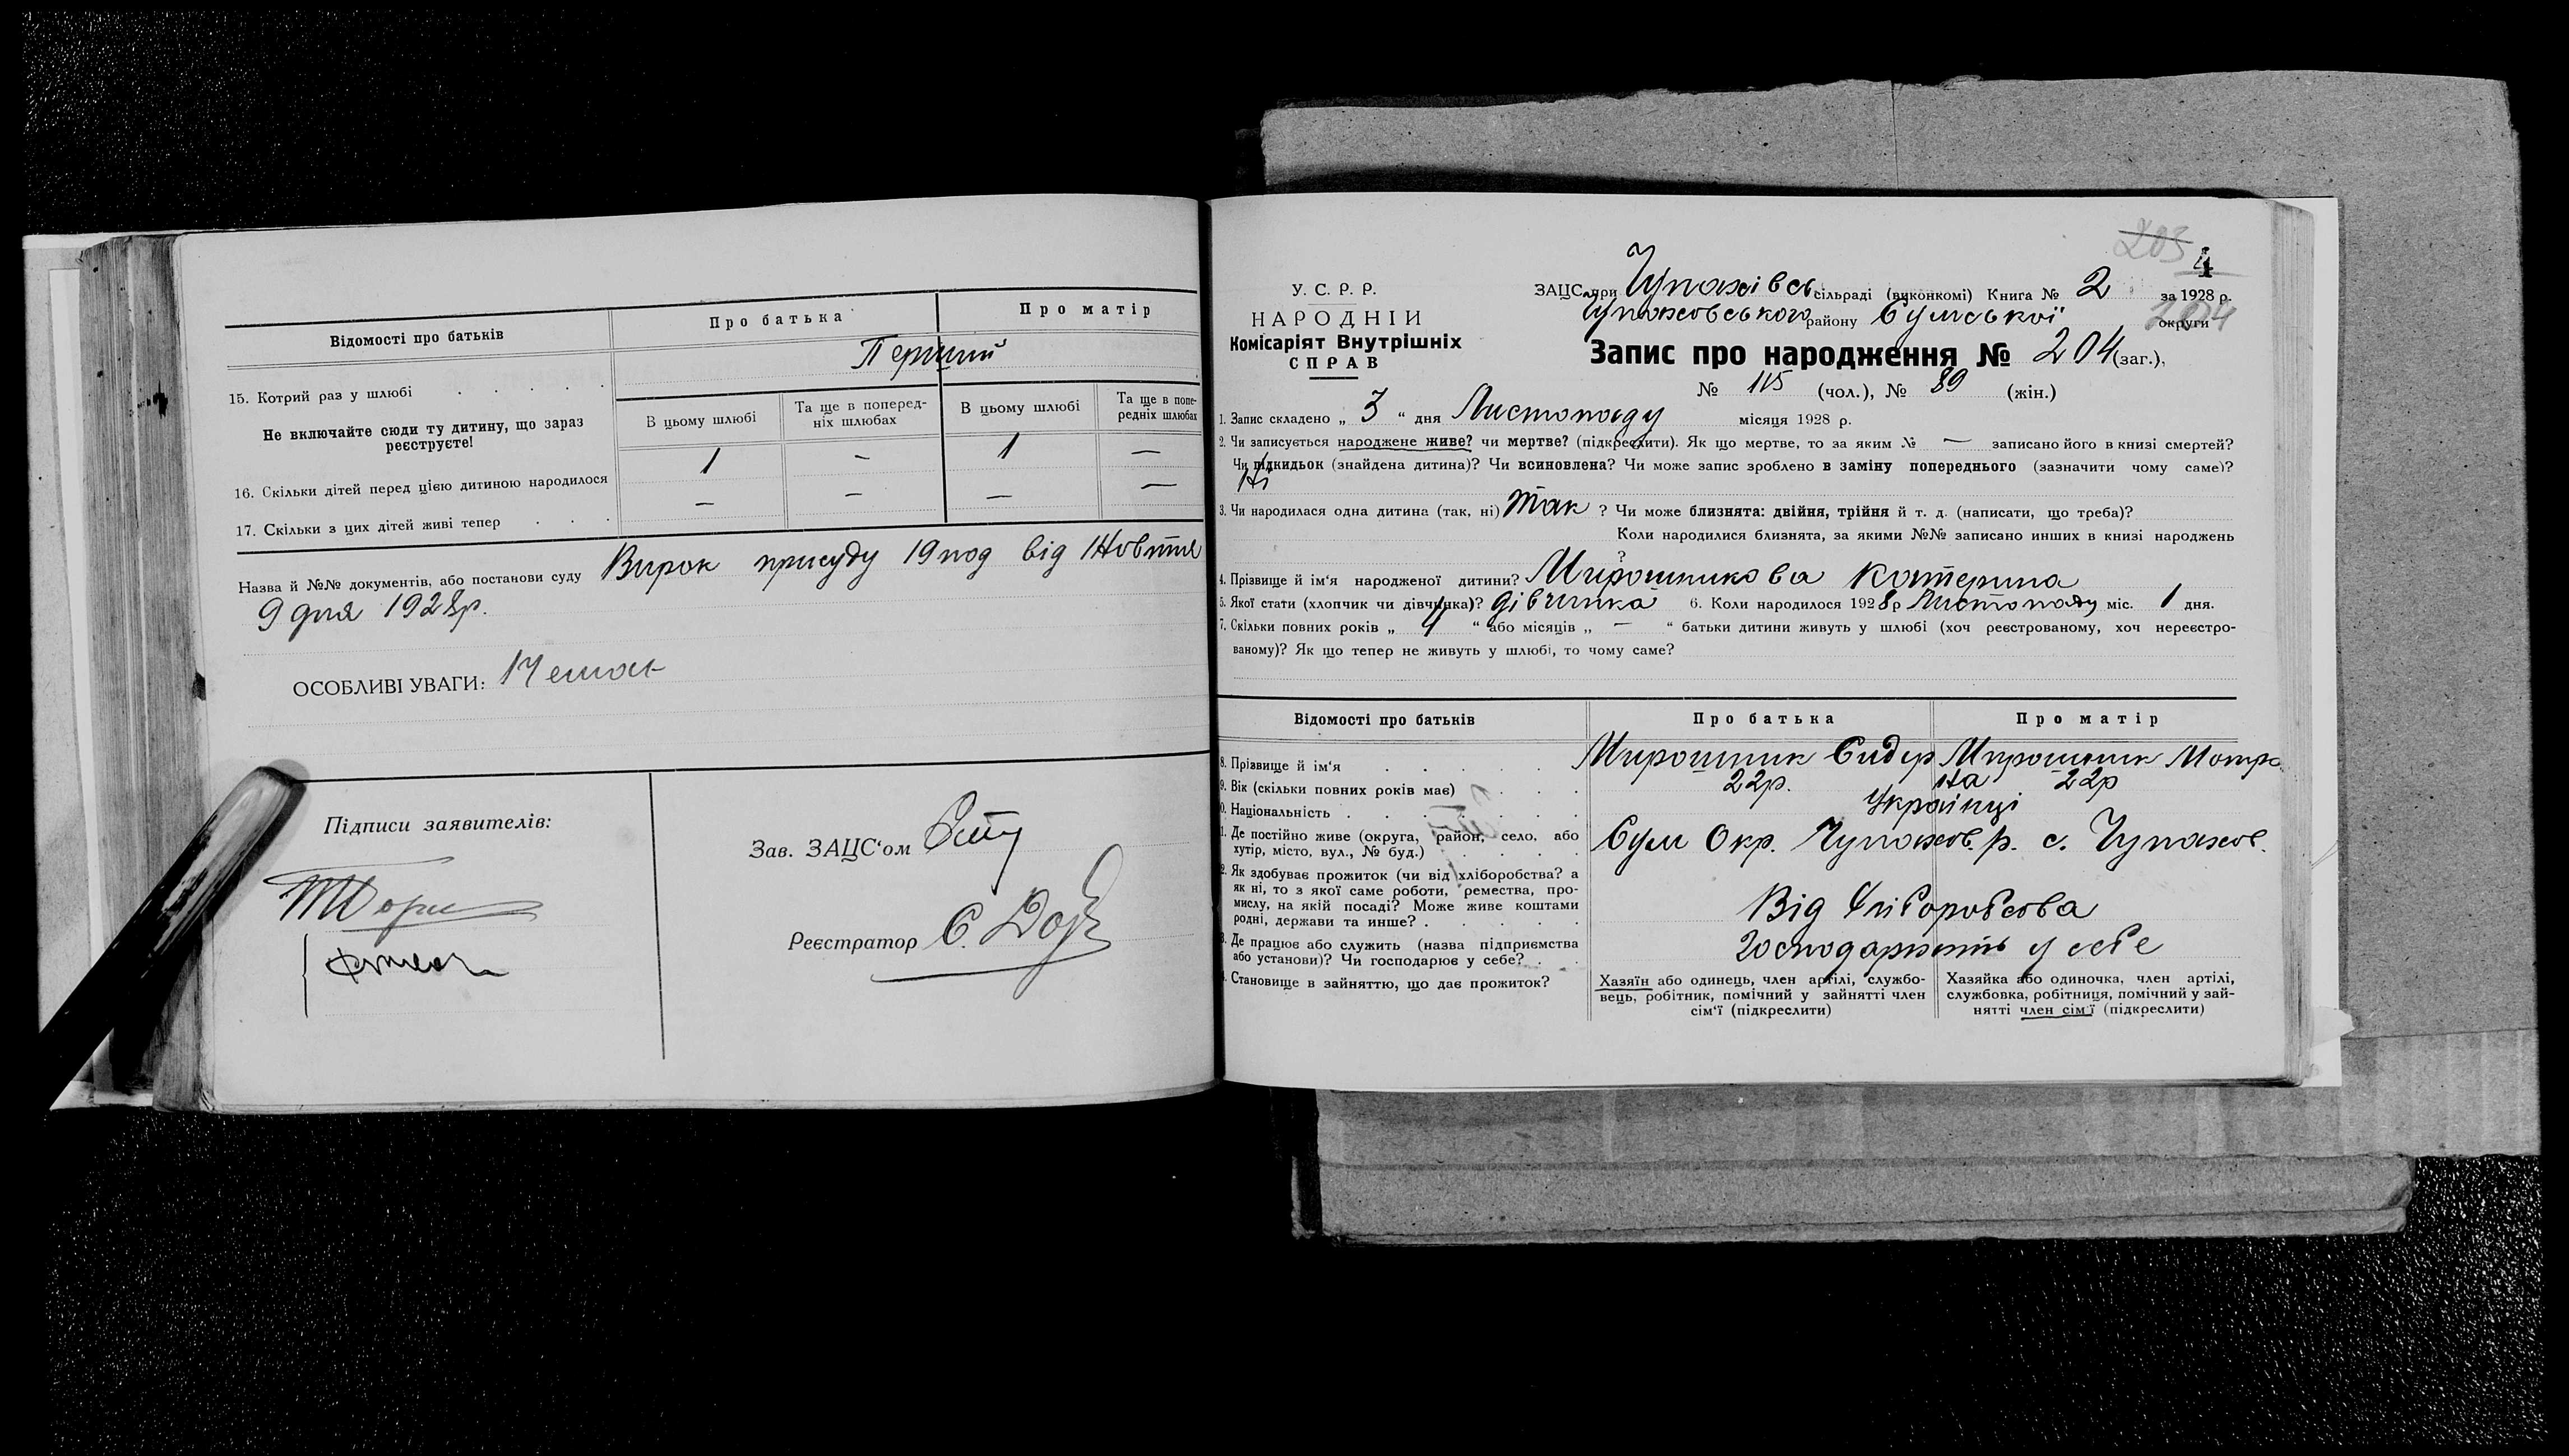 Відомості про батьків
Про батька
Про матір
Перший
15. Котрий раз у шлюбі
Не включайте сюди ту дитину, що зараз реєструєте!
В цьому шлюбі
Та ще в поперед-
ніх шлюбах
В цьому шлюбі
Та ще в попе-
редніх шлюбах
16. Скільки дітей перед цією дитиною народилося
1 — 1 —
17. Скільки з цих дітей живі тепер
— — — —
Назва й №№ документів, або постанови суду Вирок присуду 19 под від
9 дня 1928р.
ОСОБЛИВІ УВАГИ:
Підписи заявителів:
Зав. ЗАЦС'ом
Реєстратор С.
203
4
У. С. Р. Р.
НАРОДНІЙ
Комісаріят Внутрішніх
СПРАВ
ЗАЦС при Чупахівсь сільраді (виконкомі) Книга № 2 за 1928 р.
Чупаховського району Сумської округи
204
Запис про народження № 204 (заг.),
№ 115 (чол.), № 89 (жін.)
1. Запис складено „ 3 “ дня Листопаду місяця 1928 р.
2. Чи записується народжене живе? чи мертве? (підкреслити). Як що мертве, то за яким № — записано його в книзі смертей?
Чи підкидьок (знайдена дитина)? Чи всиновлена? Чи може запис зроблено в заміну попереднього (зазначити чому саме)?
Ні
3. Чи народилася одна дитина (так, ні) Так ? Чи може близнята: двійня, трійня й т. д. (написати, що треба)?
Коли народилися близнята, за якими №№ записано инших в книзі народжень
?
4. Прізвище й ім'я народженої дитини? Мирошникова Катерина
5. Якої стати (хлопчик чи дівчинка)? дівчинка 6. Коли народилося 1928 р Листопаду міс. 1 дня.
7. Скільки повних років „ 4 “ або місяців „ — “ батьки дитини живуть у шлюбі (хоч реєстрованому, хоч нереєстро-
ваному)? Як що тепер не живуть у шлюбі, то чому саме?
Відомості про батьків
Про батька
Про матір
8. Прізвище й ім'я
Мирошник Сидер
Мирошник Мотро
на
9. Вік (скільки повних років має)
22р.
22р
0. Національність
Українці
1. Де постійно живе (округа, район, село, або
хутір, місто, вул., № буд.)
Сум Окр. Чупахов. р. с. Чупахов.
2. Як здобуває прожиток (чи від хліборобства? а
як ні, то з якої саме роботи, ремества, про-
мислу, на якій посаді? Може живе коштами
родні, держави та инше?
Від Хліборобсва
3. Де працює або служить (назва підприємства
або установи)? Чи господарює у себе?
Господарюють у себе
Становище в зайняттю, що дає прожиток?
Хазяїн або одинець, член артілі, службо-
вець, робітник, помічний у зайнятті член
сім'ї (підкреслити)
Хазяйка або одиночка, член артілі,
службовка, робітниця, помічний у зай-
нятті член сім'ї (підкреслити)